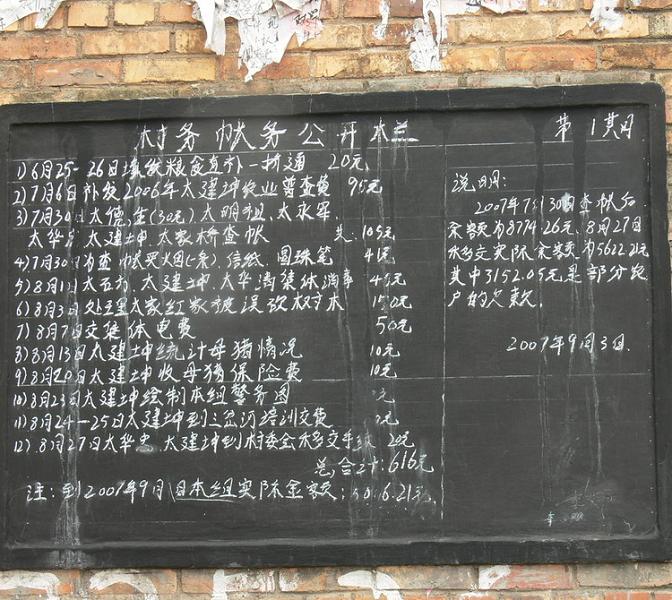 村务帐务公开栏 第1期
1)6月25-26日填发粮食直补一折通 20元
2)7月6日补发2006年太建坤农业普查费 95元
3)7月30日太德(30元)太明祖.太永军.
太华 太建坤.太家桥查帐 共:105元
4)7月30日为查帐买烟(一条).信纸.圆珠笔 4元
5)8月1日太 太建坤.太华 集体 45元
6)8月3日处理太家红家被误砍树木 150元
7)8月7日交集体电费 50元
8)8月13日太建坤统计母猪情况 10元
9)8月20日太建坤收母猪保险费 10元
10)8月23日太建坤绘制本组警务图 元
11)8月24-25日太建坤到三岔河培训交费 元
12)8月27日太华 太建坤到村委会移交手续 20元
总合计:616元
注:到2007年9月1日本组实际金额: 6.21元.
说明:
2007年7月30日查帐后
余额为8774.26元.8月27日
移交实际余额为5622.21元
其中3152.05元是部分农
户的欠款.
2007年9月3日.